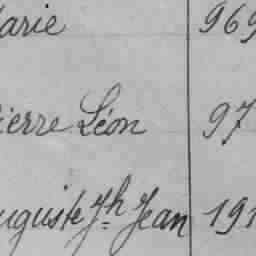 arie 969
ierre Léon 97
uguste Jh Jean 191